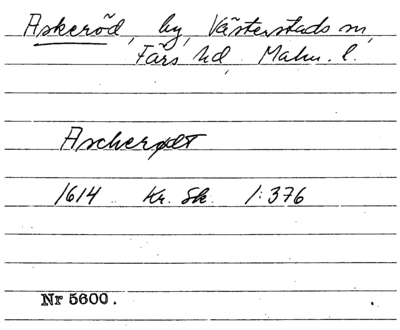 Askeröd, by, Västerstads sn,
Färs hd, Malm. l.
Ascherødt
1614 Kr. Sk. 1:376
Nr 5600.